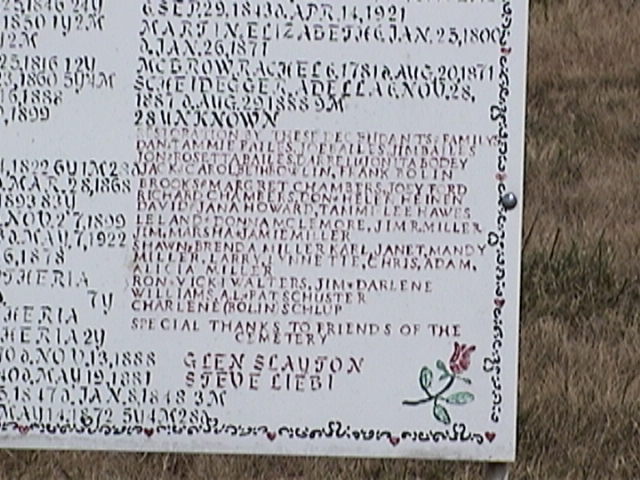 25,1846 24Y
1850 1Y2M
2M
25,1816 12Y
3,1860 5Y4M
6,1888
,1899
,1822 6Y1M28D
D.MAR. 28,1868
1893 83Y
.NOV. 27,1899
D.MAY.7,1922
6,1878
THERIA
7Y
HERIA
HERIA 2Y
D.NOV.13,1888
D.MAY 19,1881
D.JAN.8,1848 3M
MAY 14,1872 5Y4M28D
B.SEP.29,1843D.APR.14,1921
MARTIN,ELIZABETH B.JAN.25,1800
D.JAN.26,1871
MCBROW,RACHEL B.1781D.AUG.20,1871
SCHEIDEGGER, ADELLA B.NOV.28,
1887 D.AUG.29,1888 9M
28 UNKNOWN
RESTORATION BY THESE DECENDANTS+FAMILY
DAN,TAMMIE FAILES,JOE FAILES,JIM BAILES
JON+ROSETTA BAILES,DARRELL+JONITA BODEY
JACK+CAROL BROWLIN, FRANK BOLIN
BROOKS+MARGRET CHAMBERS,JOEY FORD
RICHARD CHAMBERS, DON+HELEN HEINEN
DAVID+JANA HOWARD, TAMMI+LEE HAWES
LELAND+DONNA MCLEMORE, JIM R.MILLER
JIM,MARSHA+JAMIE MILLER
SHAWN+BRENDA MILLER KAEL, JANET,MANDY
MILLER,LARRY,LYNNETTE,CHRIS,ADAM,
ALICIA MILLER
RON+VICKI WALTERS, JIM+DARLENE
WILLIAMS, AL+PAT SCHUSTER
CHARLENE (BOLIN) SCHLUP
SPECIAL THANKS TO FRIENDS OF THE
CEMETERY
GLEN SLAYTON
STEVE LIEBI